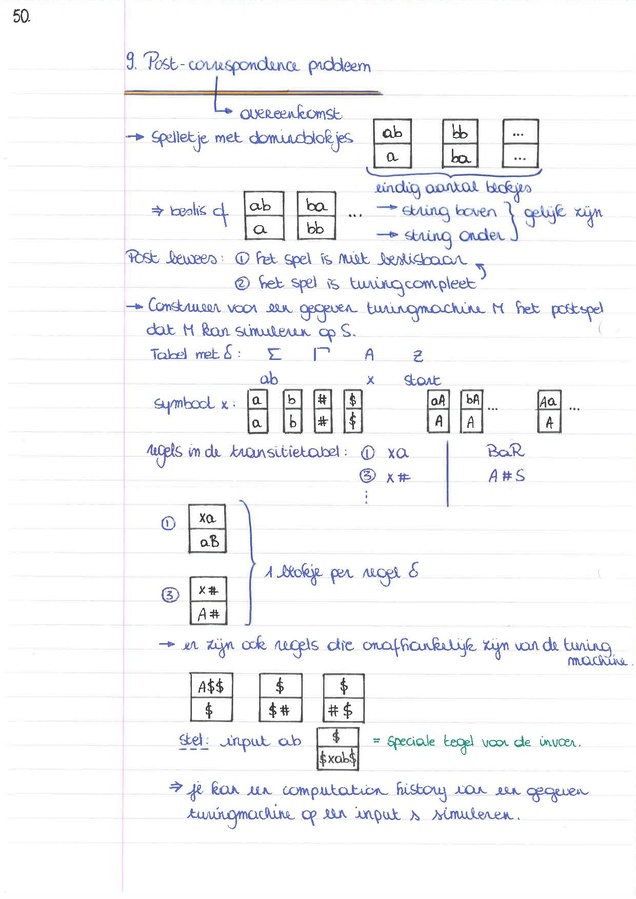 50.
9. Post-correspondence probleem
↳ overeenkomst
→ spelletje met dominoblokjes
ab bb ...
a ba ...
eindig aantal blokjes
⇒ beslis of
ab ba ...
a bb
→ string boven
→ string onder
} gelijk zijn
Post bewees: ① het spel is niet beslisbaar
② het spel is turingcompleet
→ Construeer voor een gegeven turingmachine M het postspel
dat M kan simuleren op S.
Tabel met δ: Σ Γ A Z
ab x start
symbool x: a b # $ aA bA ... Aa ...
a b # $ A A A
regels in de transitietabel: ① xa BaR
③ x# A#S
⋮
① xa
aB
③ x#
A#
} 1 blokje per regel δ
→ er zijn ook regels die onafhankelijk zijn van de turing
machine.
A$$ $ $
$ $# #$
stel: input ab $ = speciale tegel voor de invoer.
$xab$
⇒ je kan een computation history van een gegeven
turingmachine op een input s simuleren.